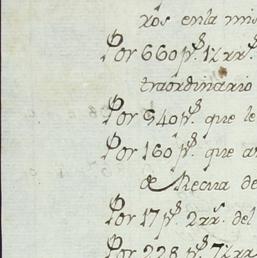 xôs en la mis
Por 660 p.s 1½ rr.s
traordinario
Por 540 p.s que le
Por 160 p.s que a
de Recina de
Por 17 p.s 2 rr.s del
Por 228 p.s 7½ rr